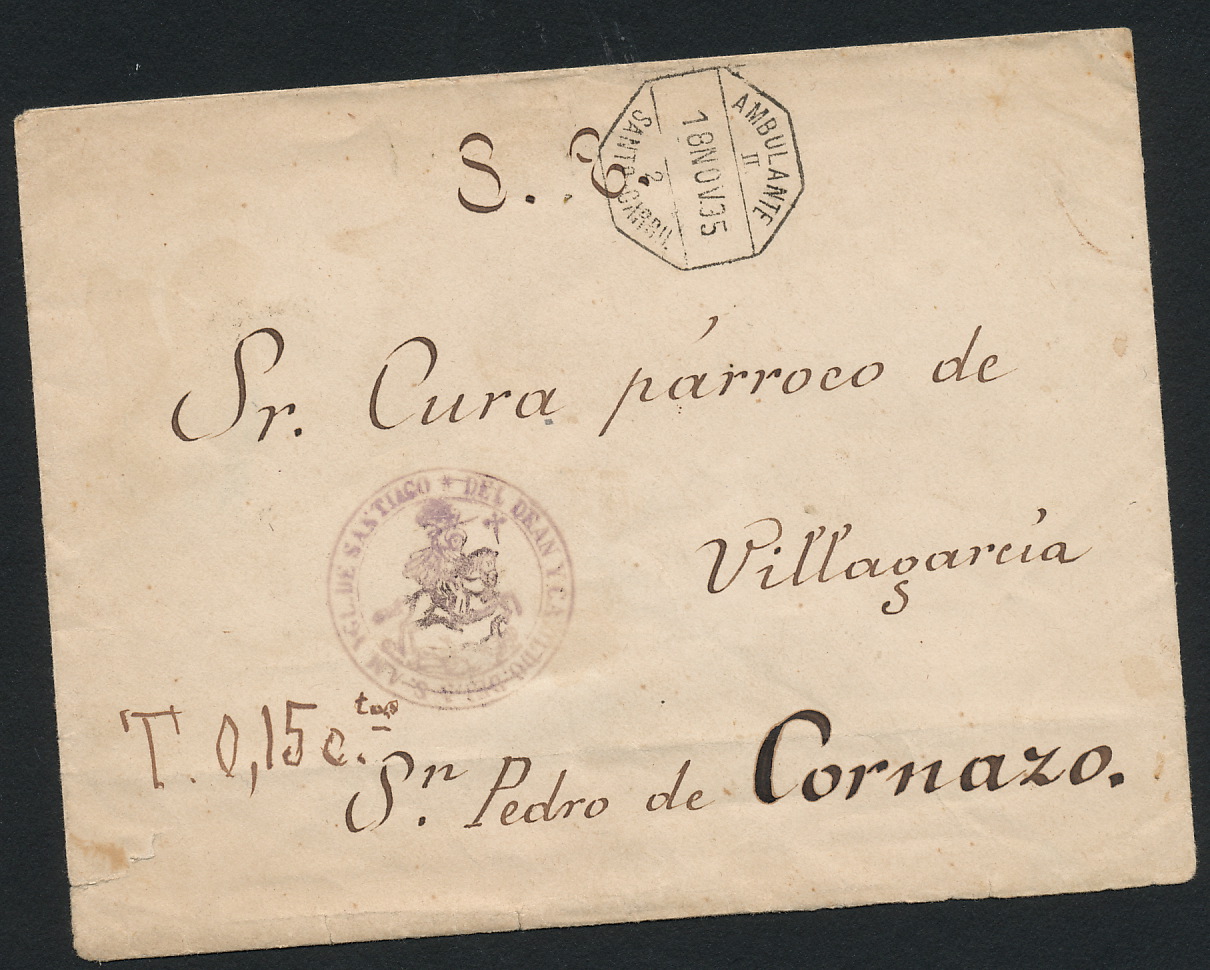 S. C.
AMBULANTE
II
18 NOV.35
2
SANTº CARRIL
Sr. Cura párroco de
DEL DEAN Y CABILDO DE LA S. A. M. YGL. DE SANTIAGO *
Villagarcía
T. 0,15 c.tos
Sn. Pedro de Cornazo.